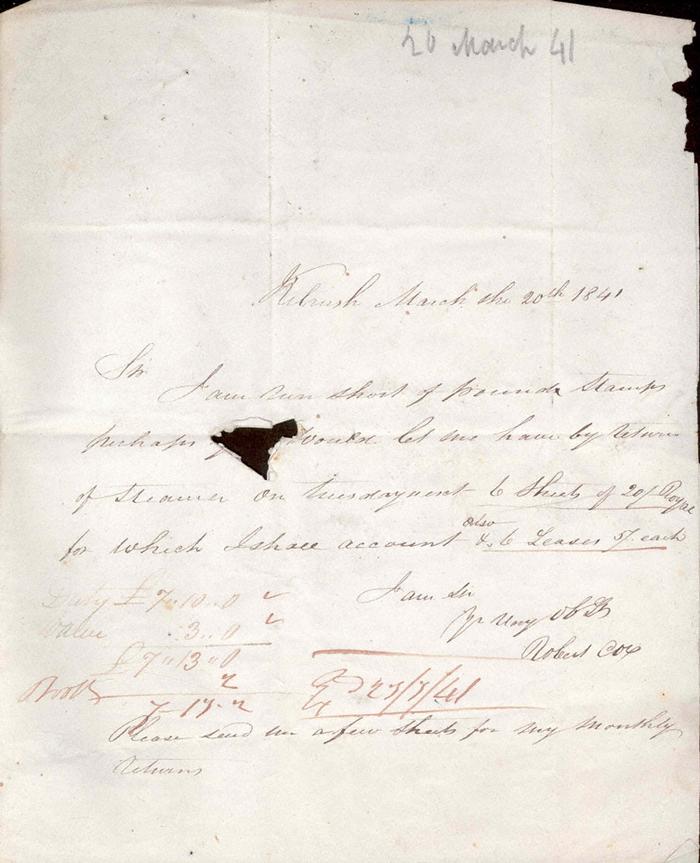 20 March 41
Kilrush March the 20th 1841
Sir
I am run short of pounds Stamps
perhaps would let me have by return
of Steamer on tuesday next 6 Sheets of 20/ Royal
for which I shall account also & 6 Leases 5/ each
I am Sir
Yr Very Obt
Robert Cox
Duty £7..10..0
Value 3..0
£7"13"0
2
7-13-2
23/3/41
Please send me a few Sheets for my Monthly
returns